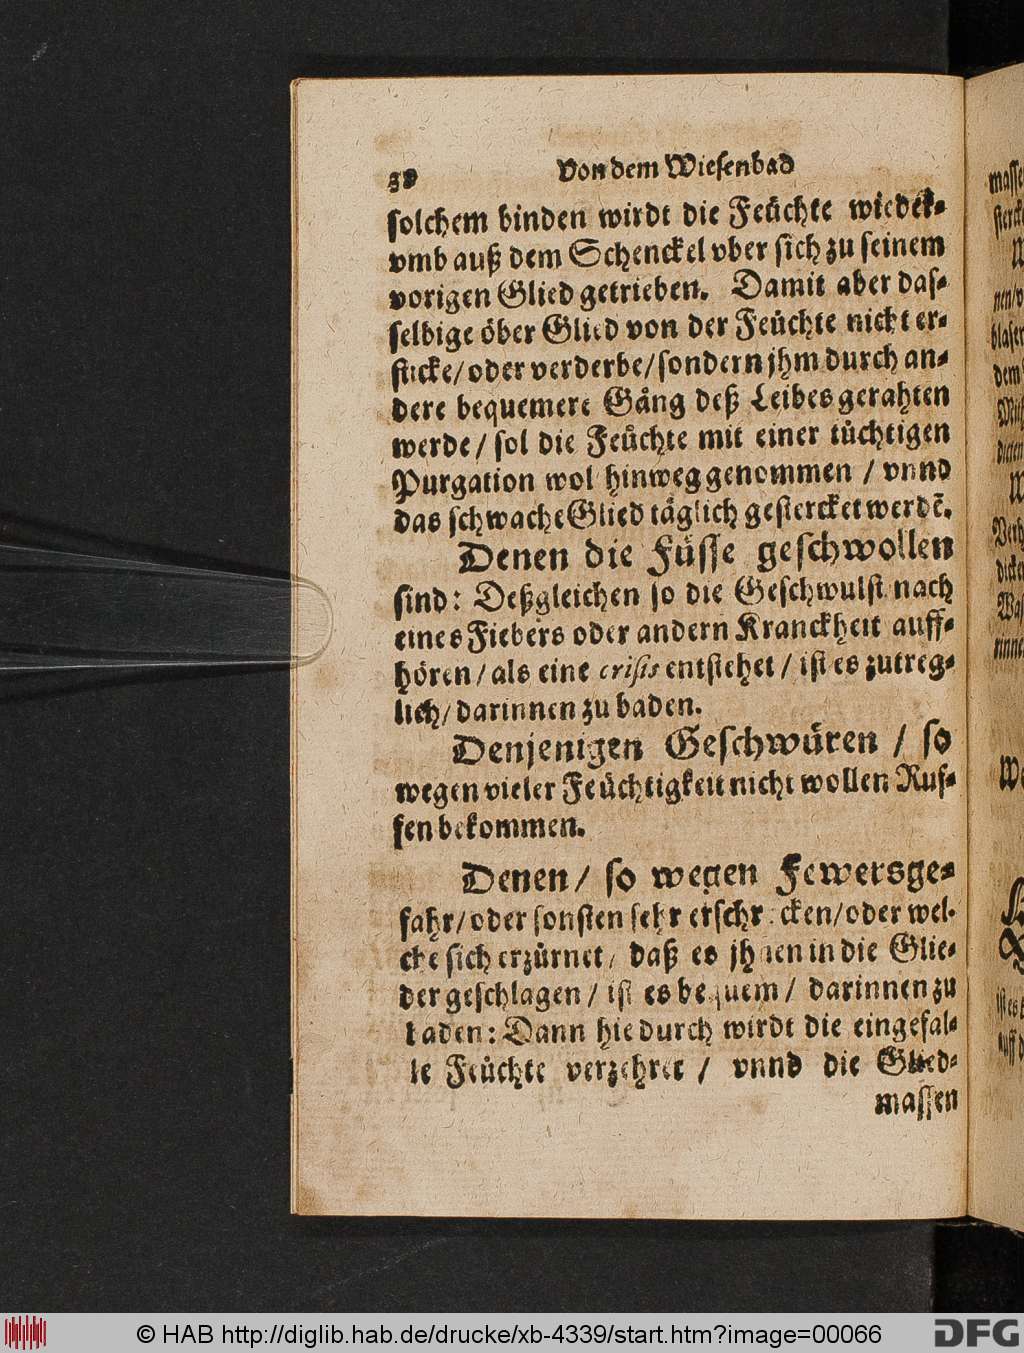 38 Von dem Wiesenbad
solchem binden wirdt die Feüchte wieder-
vmb auß dem Schenckel vber sich zu seinem
vorigen Glied getrieben. Damit aber das-
selbige öber Glied von der Feüchte nicht er-
sticke/ oder verderbe/ sondern jhm durch an-
dere bequemere Gäng deß Leibes gerahten
werde/ sol die Feüchte mit einer tüchtigen
Purgation wol hinweg genommen / vnnd
das schwache Glied täglich gestercket werdē.
Denen die Füsse geschwollen
sind: Deßgleichen so die Geschwulst nach
eines Fiebers oder andern Kranckheit auff-
hören/ als eine crisis entstehet/ ist es zutreg-
lich/ darinnen zu baden.
Denjenigen Geschwüren / so
wegen vieler Feüchtigkeit nicht wollen Ruf-
fen bekommen.
Denen/ so wegen Fewersge-
fahr/ oder sonsten sehr erschrocken/ oder wel-
che sich erzürnet/ daß es jhnen in die Glie-
der geschlagen/ ist es bequem/ darinnen zu
baden: Dann hiedurch wirdt die eingefal-
le Feüchte verzehret / vnnd die Glied-
massen
© HAB http://diglib.hab.de/drucke/xb-4339/start.htm?image=00066
DFG